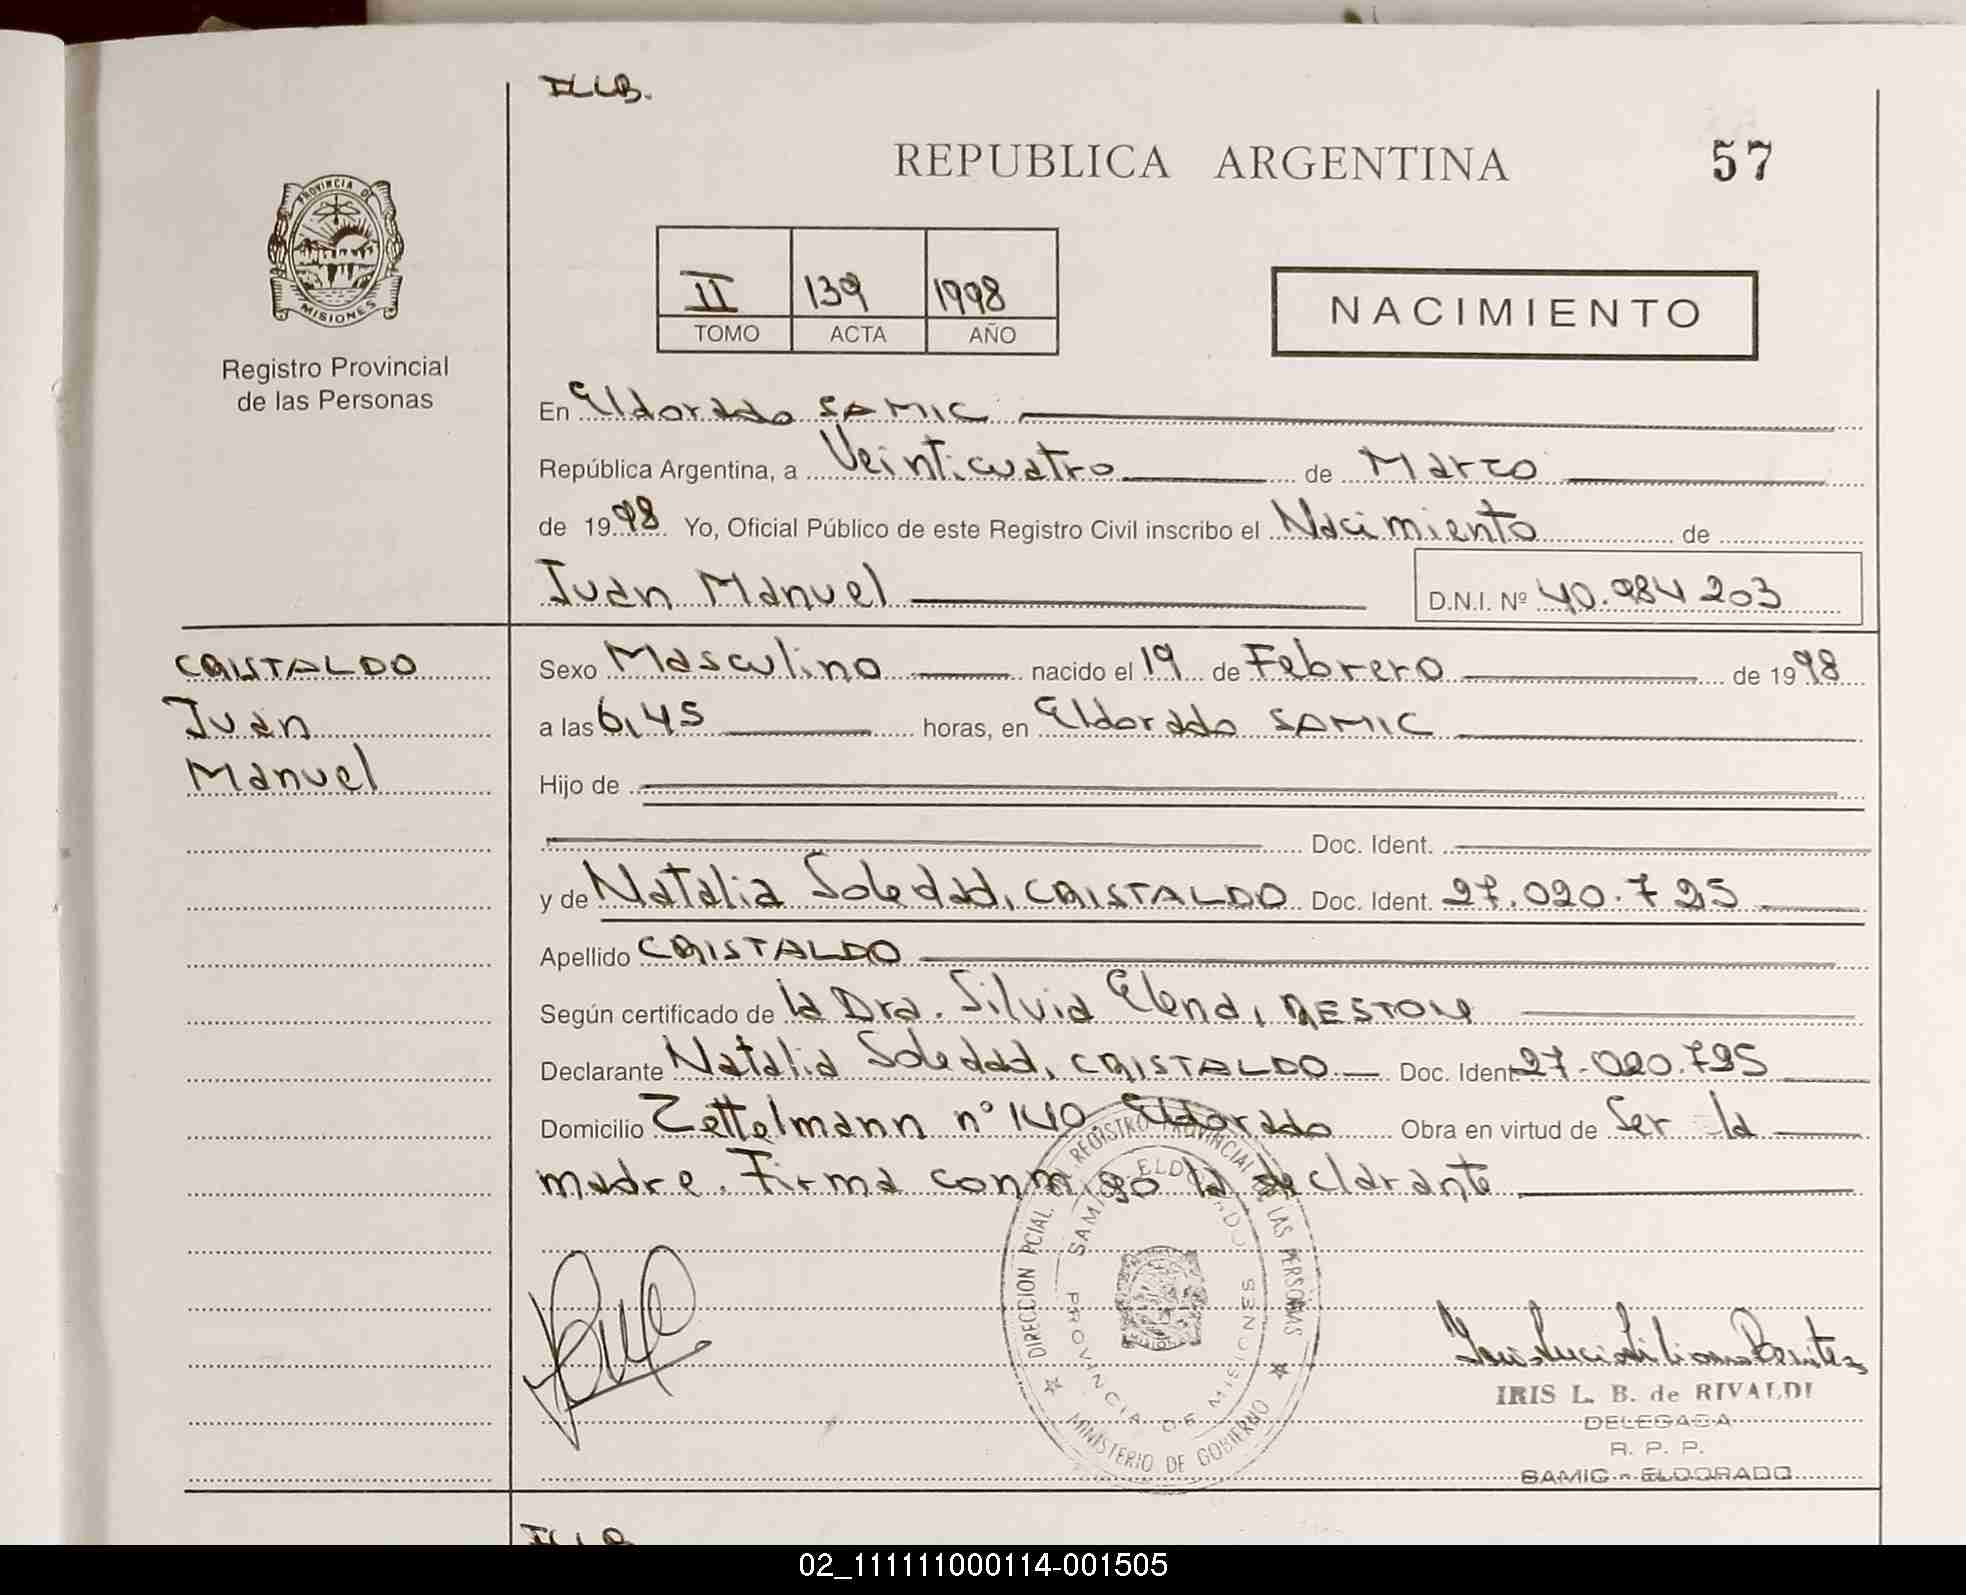 ILLB.
REPUBLICA ARGENTINA
57
PROVINCIA DE
MISIONES
Registro Provincial
de las Personas
II 139 1998
TOMO ACTA AÑO
NACIMIENTO
En Eldorado SAMIC
República Argentina, a Veinticuatro de Marzo
de 1998 Yo, Oficial Público de este Registro Civil inscribo el Nacimiento de
Juan Manuel
D.N.I. Nº 40.984 203
CRISTALDO
Juan
Manuel
Sexo Masculino nacido el 19 de Febrero de 1998
a las 6,45 horas, en Eldorado SAMIC
Hijo de
Doc. Ident.
y de Natalia Soledad, CRISTALDO Doc. Ident. 27.020.725
Apellido CRISTALDO
Según certificado de la Dra. Silvia Elena,
Declarante Natalia Soledad, CRISTALDO Doc. Ident 27.020.725
Domicilio Zettelmann nº 140 Eldorado Obra en virtud de Ser la
madre. Firma conmigo la declarante
DIRECCION PCIAL. REGISTRO PROVINCIAL DE LAS PERSONAS
SAMIC ELDORADO
PROVINCIA DE MISIONES
MINISTERIO DE GOBIERNO
IRIS L. B. de RIVALDI
DELEGADA
R. P. P.
SAMIC - ELDORADO
02_111111000114-001505